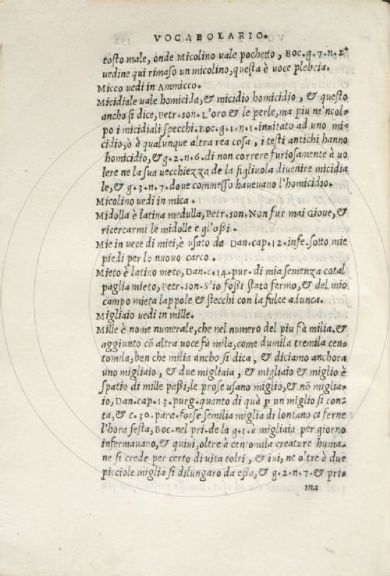 VOCABOLARIO.
tosto male, onde Micolino uale pochetto, Boc.g.7.n.2.
uedine qui rimaso un micolino, questa è uoce plebeia.
Micco uedi in Ammicco.
Micidiale uale homicida, & micidio homicidio, & questo
ancho si dice, Petr.son. L'oro & le perle, ma piu ne'ncol-
po i micidiali specchi. Boc.g.1.n.1. inuitato ad uno mi-
cidio, ò à qualunque altra rea cosa, i testi antichi hanno
homicidio, & g.2.n.6. di non correre furiosamente à uo
lere ne la sua uecchiezza de la figliuola diuenire micidia
le, & g.3.n.7. doue commesso haueuano l'homicidio.
Micolino uedi in mica.
Midolla è latina medulla, Petr.son. Non fur mai Gioue, &
ricercarmi le midolle e gl'ossi.
Mie in uece di miei, è usato da Dan.cap.12.infe. sotto mie
piedi per lo nuouo carco.
Mieto è latino meto, Dan.c.14.pur. di mia semenza cotal
paglia mieto, Petr.son. S'io fossi stato fermo, & del mio
campo mieta lappole & stecchi con la fulce adunca.
Migliaio uedi in mille.
Mille è nome numerale, che nel numero del piu fà milia, &
aggiunto cō altra uoce fà mila, come dumila tremila cen-
tomila, ben che milia ancho si dica, & diciamo anchora
uno migliaio, & due migliaia, & migliaio & miglio è
spatio di mille passi, le prose usano miglio, & nō miglia-
io, Dan.cap.13.purg. quanto di quà p un miglio si con-
ta, & c.30.para. forse semilia miglia di lontano ci ferne
l'hora sesta, Boc. nel pri. de la g.1. a migliaia per giorno
infermauano, & quiui, oltre à cen'omila creature huma-
ne si crede per certo di uita tolti, & iui, ne oltre à due
picciole miglia si dilungaro da essa, & g.2.n.7. & pri-
ma